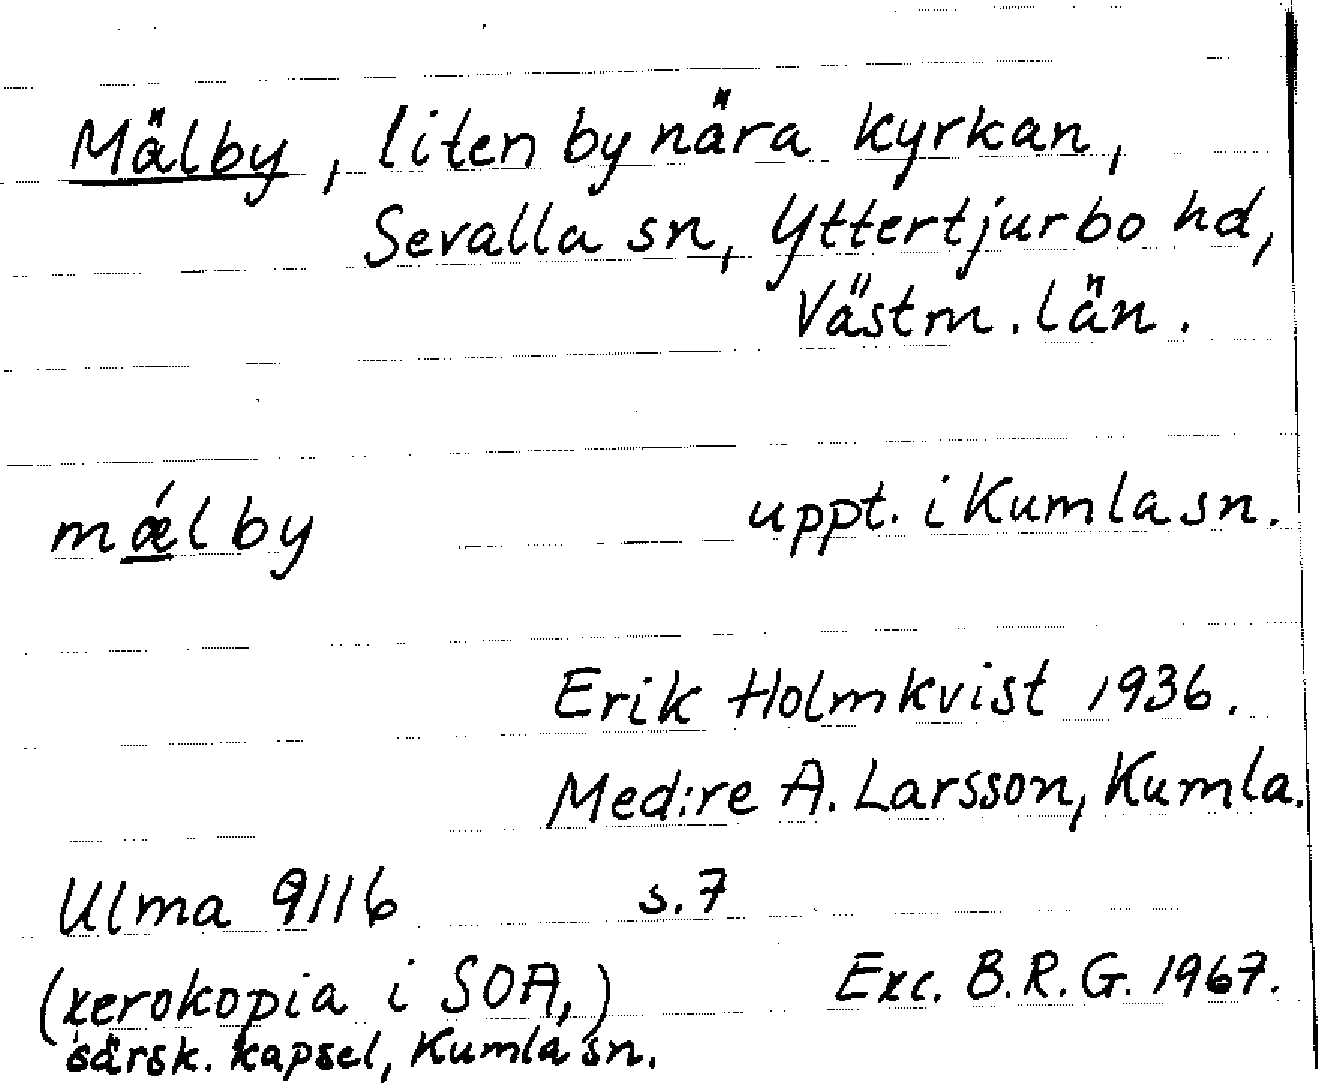 Mälby, liten by nära kyrkan,
Sevalla sn, Yttertjurbo hd,
Västm. län.
mǽlby uppt. i Kumla sn.
Erik Holmkvist 1936.
Med:re A. Larsson, Kumla.
Ulma 9116 s. 7
(xerokopia i SOA,) Exc. B.R.G. 1967.
särsk. kapsel, Kumla sn.